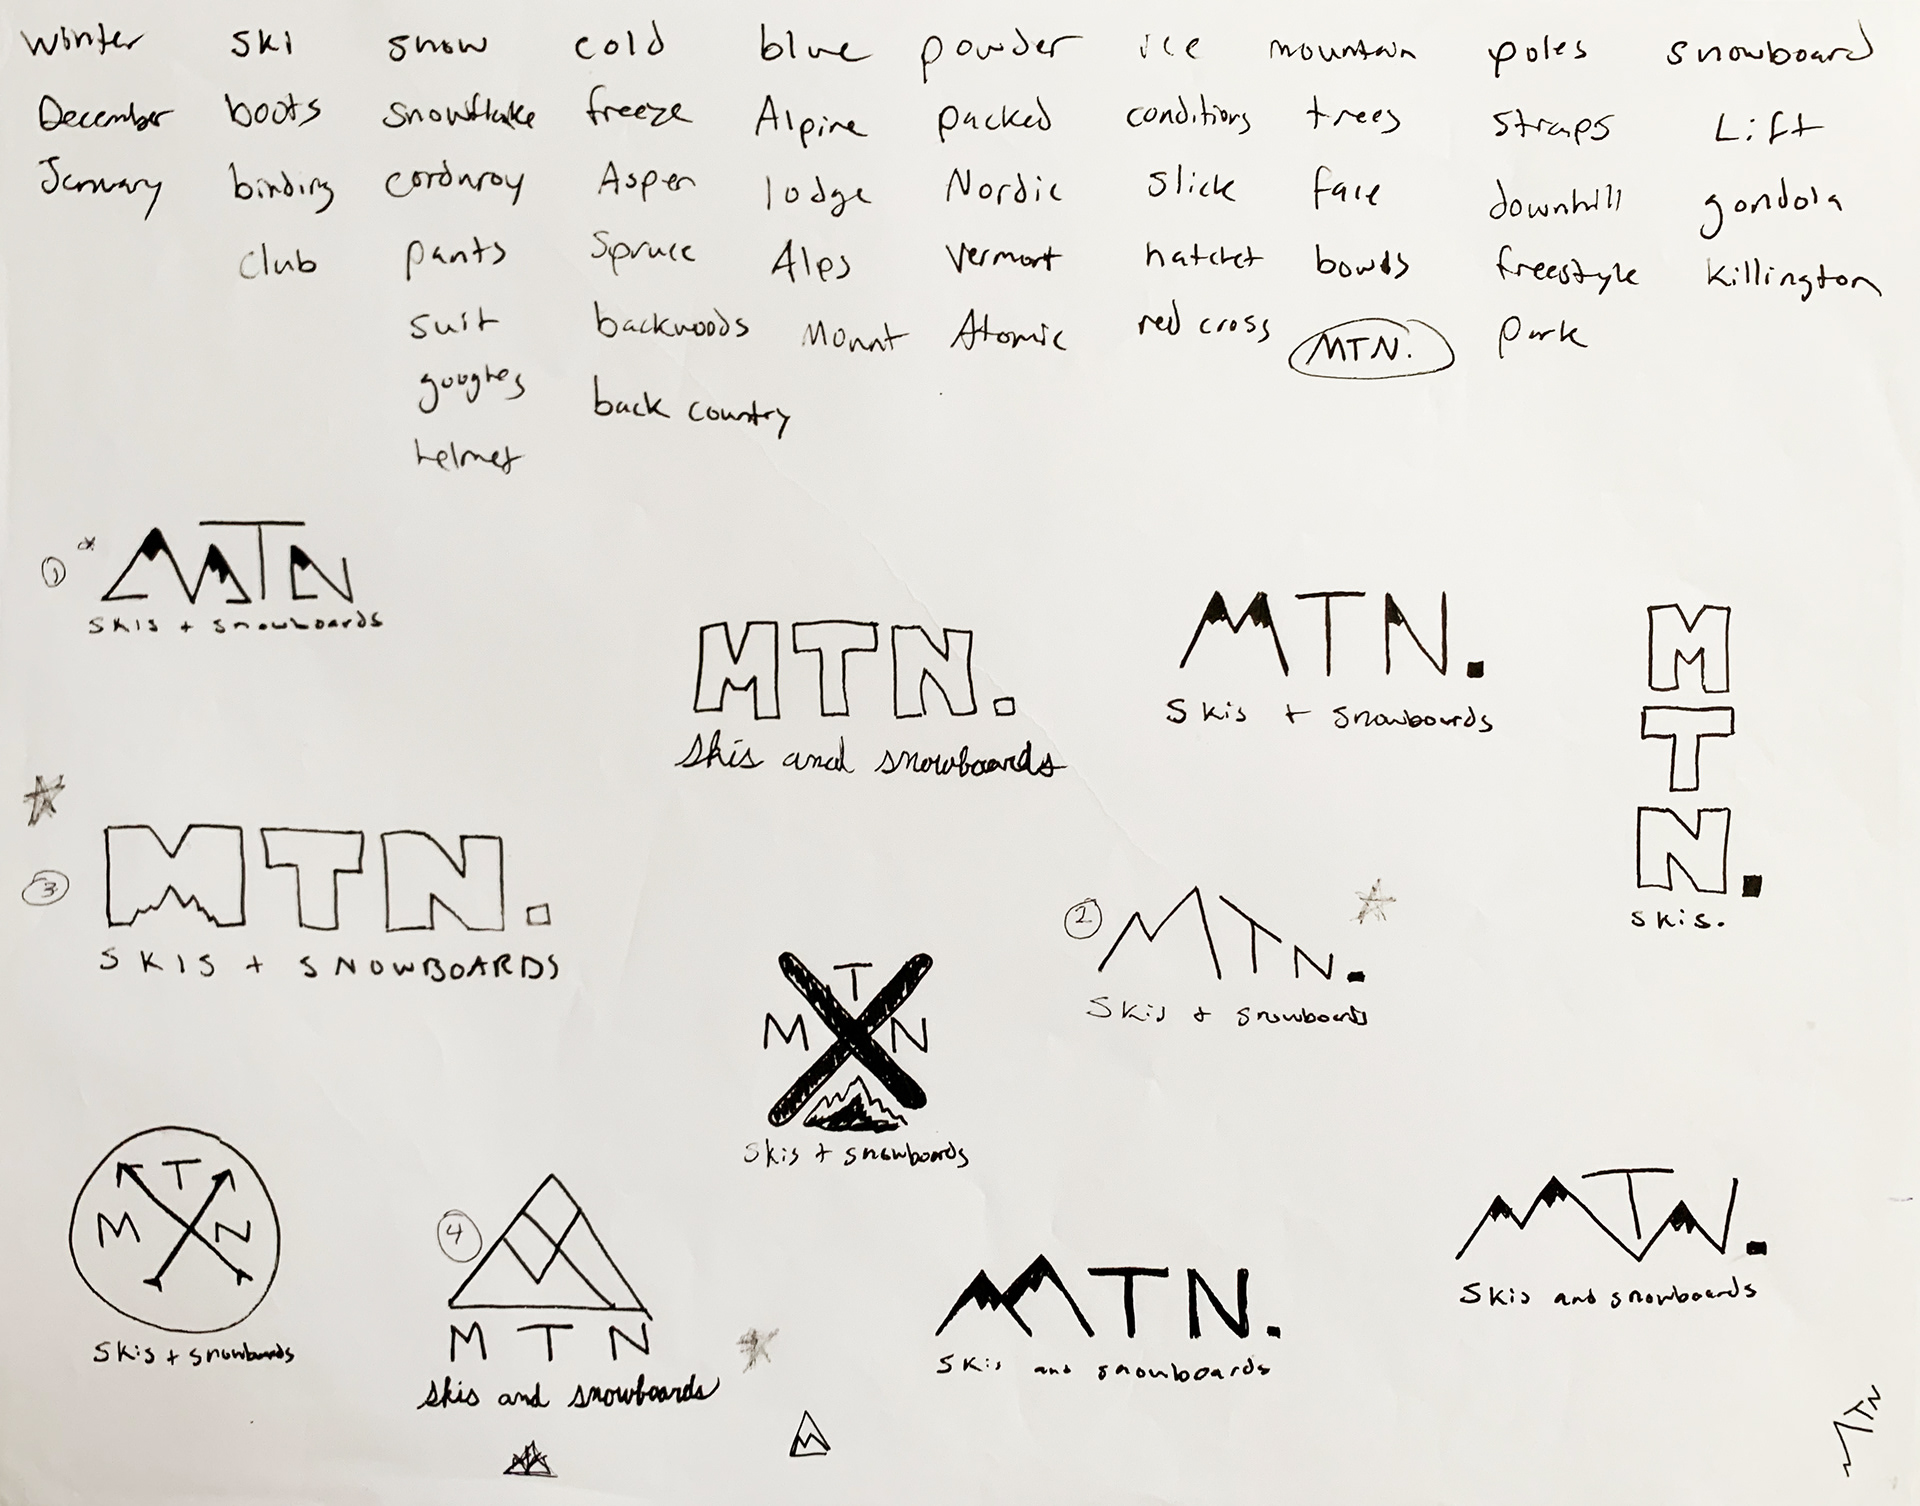 winter ski snow cold blue powder ice mountain poles snowboard
December boots snowflake freeze Alpine packed conditions trees straps Lift
January binding corduroy Aspen lodge Nordic slick face downhill gondola
club pants Spruce Alps Vermont hatchet bowls freestyle killington
suit backwoods Mount Atomic red cross MTN. park
googles back country
helmet
1 MTN
skis + snowboards
MTN.
skis and snowboards
MTN.
Skis + snowboards
M
T
N.
skis.
3 MTN.
SKIS + SNOWBOARDS
2 MTN.
Skis + snowboards
T
M N
Skis + snowboards
T
M N
Skis + snowboards
4
MTN
skis and snowboards
MTN.
Skis and snowboards
MTN.
Skis and snowboards
MTN